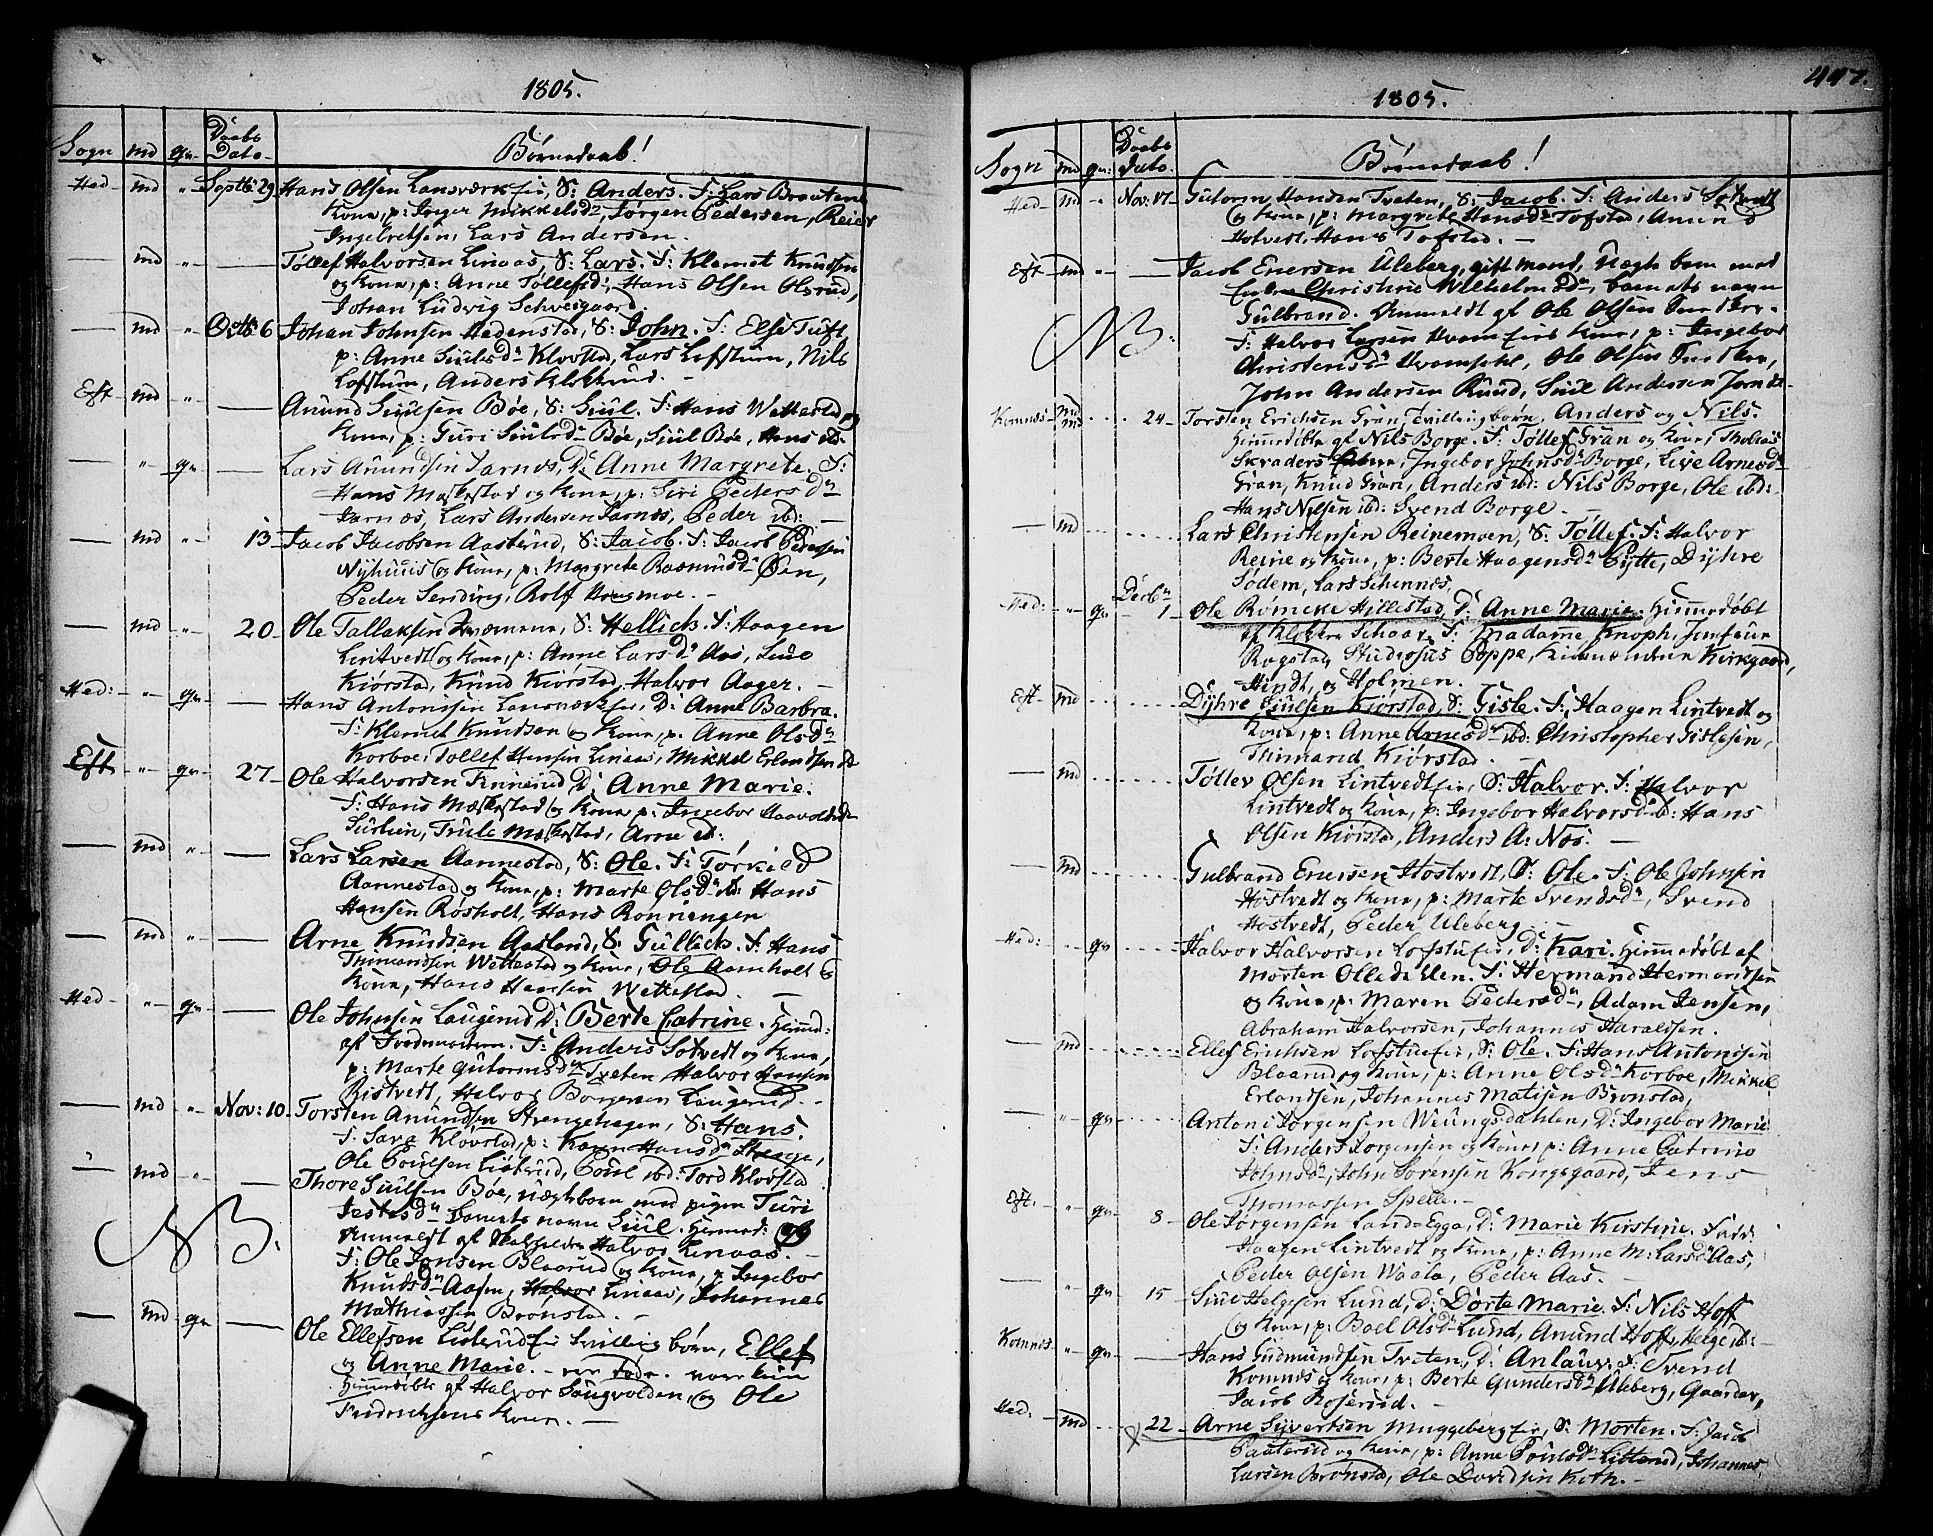 1805.
Sogn md qv Daabs Dato Børnedaab!
Hed- md " Septb: 29 Hans Olsen Lansværk eier, S: Anders. F: Lars Braaten
Kone, p: Inger Mikkelsd:, Jørgen Pedersen, Reier
Ingelretsen, Lars Andersen.
— md " — Tøllef Halvorsen Linaas, S: Lars. F: Klemet Knudsen
og Kone, p: Anne Tøllefsd:, Hans Olsen Olsrud,
Johan Ludvig Schweigaard.
— md " Octb: 6 Johan Johnsen Hedenstad, S: John. F: Else Tuft
p: Anne Siulsd: Klovstad, Lars Lofsthuen, Nils
Lofsthuen, Anders Klokkerud.
Eft md " — Anund Siulsen Bøe, S: Siul. F: Hans Wettestad og
Kone, p: Guri Siulsd: Bøe, Siul Bøe, Hans ibd:
— " qv — Lars Anundsen Jarnes, D: Anne Margrete. F:
Hans Moskestad og Kone, p: Siri Pedersd:
Jarnæs, Lars Andersen Jarnæs, Peder ibd: —
— md " 13 Jacob Jacobsen Aasterud, S: Jacob. F: Jacob Pedersen
Nyhuus og Kone, p: Margrete Rasmusd: Øen,
Peder Sending, Rolf Hougmoe. —
— md " 20 Ole Tallaksen, S: Hellick. F: Haagen
Lintvedt og Kone, p: Anne Larsd: Aas, Siul
Kiørstad, Knud Kiørstad, Halvor Aager. —
Hed: " qv — Hans Antonsen Lansværk eier, D: Anne Barbra.
F: Klemet Knudsen og Kone, p: Anne Olsd:
Korboe, Tollef Hansen Linaas, Mikkel Erlandsen ibd
Eft " qv 27 Ole Halvorsen D: Anne Marie.
F: Hans Moskestad og Kone p: Ingebor Haavoldsd:
Truls Moskestad, Arne ibd:
— md " — Lars Larsen Aannestad, S: Ole. F: Torkild
Aannestad og Kone, p: Marte Olsd: ibd: Hans
Hansen Røsholt, Hans Ronningen
— md " — Arne Knudsen Aasland, S: Gullick. F: Hans
Thimandsen Wettestad og Kone, Ole Aamholt
Kone, Hans Hansen Wettestad. —
Hed- " qv — Ole Johnsen Laugerud D: Berte Catrine. Hiemd:
af Jordemoren. F: Anders Sotvedt og Kone,
p: Marte Gutormsd: Tveten Halvor Hansen
Ristvedt, Halvor Borgersen Laugerud. —
— md " Nov: 10 Torsten Anundsen Strengehagen, S: Hans.
F: Sara Kløvstad, p: Karen Hansd: Skrenge,
Ole Poulsen Listerud, Poul ibd: Tord Kløvstad
— md " — Thore Siulsen Bøe, uægte barn med pigen Turi
Jestesd: barnets navn Siul. Hiemmed:
NB. anmeldt af Halvor Linaas. —
F: Ole Jonsen Blaarud og Kone, p: Ingebor
Knudsd: Aasen, Halvor Linaas, Johannes
Mathiassen Brønstad. —
— md qv — Ole Ellefsen Listerud eier tvilling børn, Ellef
og Anne Marie. — var døde
Hiemmedøbte af Halvor Saugvolden, og Ole
Fridrichsens Kone. —
447.
1805.
Sogn md qv: Daabs Dato. Børnedaab!
Hed- md " Nov: 17 Gutorm Hansen Tveten, S: Jacob. F: Anders Sotvedt
og Kone, p: Margrete Hansd: Tofstad, Anund
Hotvedt, Hans Tofstad. —
Eft md " — Jacob Enersen Uleberg, gift mand, Uægte barn med
Christine Wilhelmsd:, barnets navn
Gulbrand. Anmeldt af Ole Olsen
NB. F: Halvor Larsen Kone, p: Ingebor
Christensd: Ole Olsen
John Andersen Ruud, Siul Andersen
Komnæs md md 24 Torsten Erichsen Gran, tvilling børn, Anders og Nils.
Hiemmedøbte af Nils Borge. F: Tøllef Gran og Kone, Tholias
Skraders, Ingebor Johnsd: Borge, Lise Arnesd:
Gran, Knud Gran, Anders ibd: Nils Borge, Ole ibd:
Hans Nilsen ibd: Svend Borge. —
— md Lars Christensen Reinemoen, S: Tøllef. F: Halvor
Reine og Kone, p: Berte Haagensd: Pytte, Dyhre
Sodem, Lars Schennes.
Hed: " qv Decbr 1 Ole Römcke Hillestad, D: Anne Marie. Hiemmedøbt
af Klokker Schaar. F: Madame Knoph, Jomfrue
Rogstad, Studiosus Poppe, Kirkgaard,
Hindt, og Holmen.
Eft md Dyhre Siulsen Kiørstad, S: Gisle. F: Haagen Lintvedt og
Kone, p: Anne Arnesd: ibd: Christopher Gislesen,
Thimand Kiørstad.
— md Tøllev Olsen Lintvedt eier, S: Halvor. F: Halvor
Lintvedt og Kone, p: Ingebor Halvorsd: ibd: Hans
Olsen Kiørstad, Anders A: Nøs. —
— md Gulbrand Enersen Hostvedt, S: Ole. F: Ole Johnsen
Hostvedt og Kone, p: Marte Svendsd:, Svend
Hostvedt, Peder Uleberg. —
Hed: " qv Halvor Halvorsen Lofstu eier, D: Kari. Hiemmedøbt af
Morten Olledalen. F: Herman Hermansen
og Kone, p: Maren Pedersd:, Adam Jensen,
Abraham Halvorsen, Johannes Haraldsen.
— md Ellef Erichsen Lofstu eier, S: Ole. F: Hans Antonisen
Blaarud og Kone, p: Anne Olsd: Korboe, Mikkel
Erlandsen, Johannes Matisen Brønstad,
— " qv Antoni Jørgensen Weungsdahlen, D: Ingebor Marie
F: Anders Jorgensen og Kone, p: Anne Catrine
Johnsd:, John Sorensen Kongsgaard, Jens
Thomassen Spelle. —
Eft. " qv 8 Ole Jörgensen Land-Egga, D: Marie Kirstine. Fadd:
Haagen Lintvedt og Kone, p: Anne M: Larsd: Aas,
Peder Olsen Waala, Peder Aas. —
— " qv 15 Siul Helgesen Lund, D: Dorte Marie. F: Nils Hoff
og Kone, p: Boel Olsd: Lund, Anund Hoff, Helge ib: —
Komnæs " qv — Hans Gudmundsen Tveten, D: Anlaug. F: Svend
Komnæs og Kone, p: Berte Gundersd: Uleberg, Gaarder,
Jacob Roserud. —
Hed: md 22 Arne Syvertsen Muggeberg eier, S: Morten. F: Jacob
Paaterud og Kone, p: Anne Poulsd: Litterud, Johannes
Larsen Brønstad, Ole Davidsen Keth. —